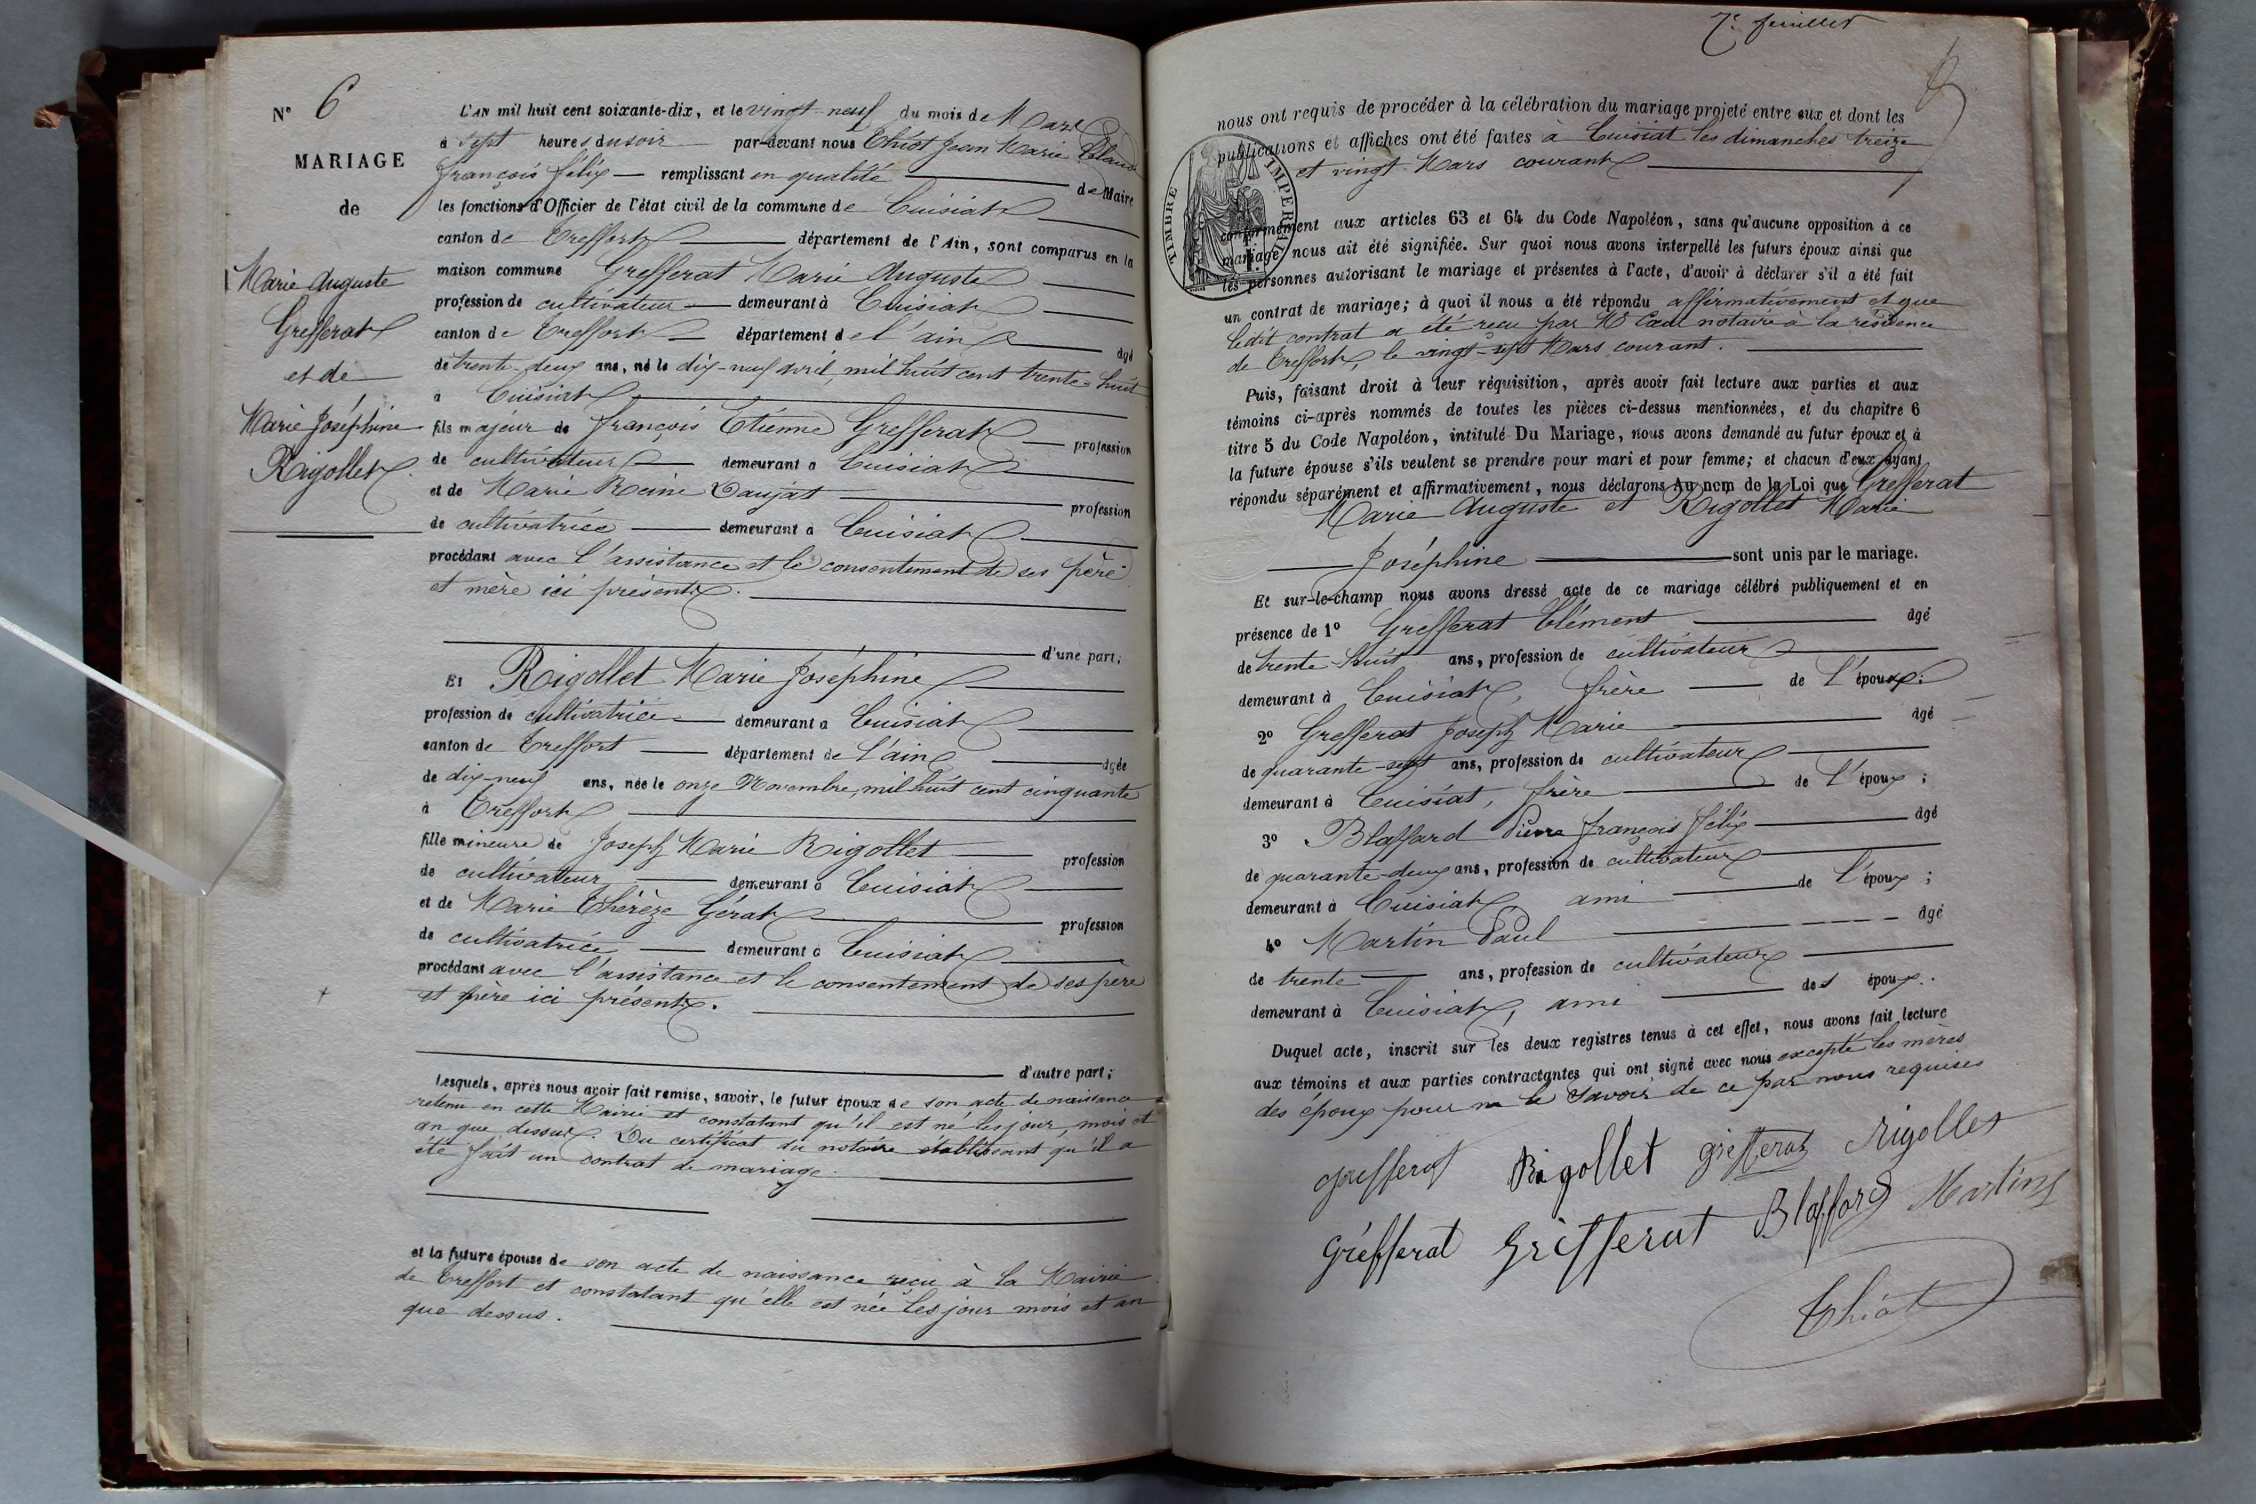 N° 6
MARIAGE
de
Marie Auguste
Grefferat
et de
Marie Joséphine
Rigollet
L'AN mil huit cent soixante-dix, et le vingt-neuf du mois de Mars
à sept heures du soir par-devant nous Thiot Jean Marie Claude
françois félix remplissant en qualité de Maire
les fonctions d'Officier de l'état civil de la commune de Cuisiat
canton de Treffort département de l'Ain, sont comparus en la
maison commune Grefferat Marie Auguste
profession de cultivateur demeurant à Cuisiat
canton de Treffort département de l'ain âgé
de trente-deux ans, né le dix-neuf avril, mil huit cent trente-huit
à Cuisiat
fils majeur de françois Etienne Grefferat profession
de cultivateur demeurant à Cuisiat
et de Marie Reine Daujat profession
de cultivatrice demeurant à Cuisiat
procédant avec l'assistance et le consentement de ses père
et mère ici présents.
d'une part;
Et Rigollet Marie Joséphine
profession de cultivatrice demeurant à Cuisiat
canton de Treffort département de l'ain âgée
de dix-neuf ans, née le onze Novembre, mil huit cent cinquante
à Treffort
fille mineure de Joseph Marie Rigollet profession
de cultivateur demeurant à Cuisiat
et de Marie Thérèze Gérat profession
de cultivatrice demeurant à Cuisiat
procédant avec l'assistance et le consentement de ses père
et mère ici présents.
d'autre part;
Lesquels, après nous avoir fait remise, savoir, le futur époux de son acte de naissance
retenu en cette Mairie et constatant qu'il est né les jour, mois et
an que dessus. Du certificat du notaire établissant qu'il a
été fait un contrat de mariage.
et la future épouse de son acte de naissance reçu à la Mairie
de Treffort et constatant qu'elle est née les jour mois et an
que dessus.
7e feuillet
nous ont requis de procéder à la célébration du mariage projeté entre eux et dont les
publications et affiches ont été faites à Cuisiat les dimanches treize
et vingt Mars courant
TIMBRE IMPERIAL
conformément aux articles 63 et 64 du Code Napoléon, sans qu'aucune opposition à ce
mariage nous ait été signifiée. Sur quoi nous avons interpellé les futurs époux ainsi que
les personnes autorisant le mariage et présentes à l'acte, d'avoir à déclarer s'il a été fait
un contrat de mariage; à quoi il nous a été répondu affirmativement et que
ledit contrat a été reçu par Me notaire à la résidence
de Treffort, le vingt-sept Mars courant.
Puis, faisant droit à leur réquisition, après avoir fait lecture aux parties et aux
témoins ci-après nommés de toutes les pièces ci-dessus mentionnées, et du chapitre 6
titre 5 du Code Napoléon, intitulé Du Mariage, nous avons demandé au futur époux et à
la future épouse s'ils veulent se prendre pour mari et pour femme; et chacun d'eux ayant
répondu séparément et affirmativement, nous déclarons Au nom de la Loi que Grefferat
Marie Auguste et Rigollet Marie
Joséphine sont unis par le mariage.
Et sur-le-champ nous avons dressé acte de ce mariage célébré publiquement et en
présence de 1° Grefferat Clément âgé
de trente-huit ans, profession de cultivateur
demeurant à Cuisiat, frère de l'époux;
2° Grefferat Joseph Marie âgé
de quarante-sept ans, profession de cultivateur
demeurant à Cuisiat, frère de l'époux;
3° Blaffard Pierre françois félix âgé
de quarante-deux ans, profession de cultivateur
demeurant à Cuisiat, ami de l'époux;
4° Martin Paul âgé
de trente ans, profession de cultivateur
demeurant à Cuisiat, ami des époux.
Duquel acte, inscrit sur les deux registres tenus à cet effet, nous avons fait lecture
aux témoins et aux parties contractantes qui ont signé avec nous excepté les mères
des époux pour ne le savoir de ce par nous requises
grefferat Rigollet grefferat Rigollet
Grefferat Grefferat Blaffard Martin
Thiot